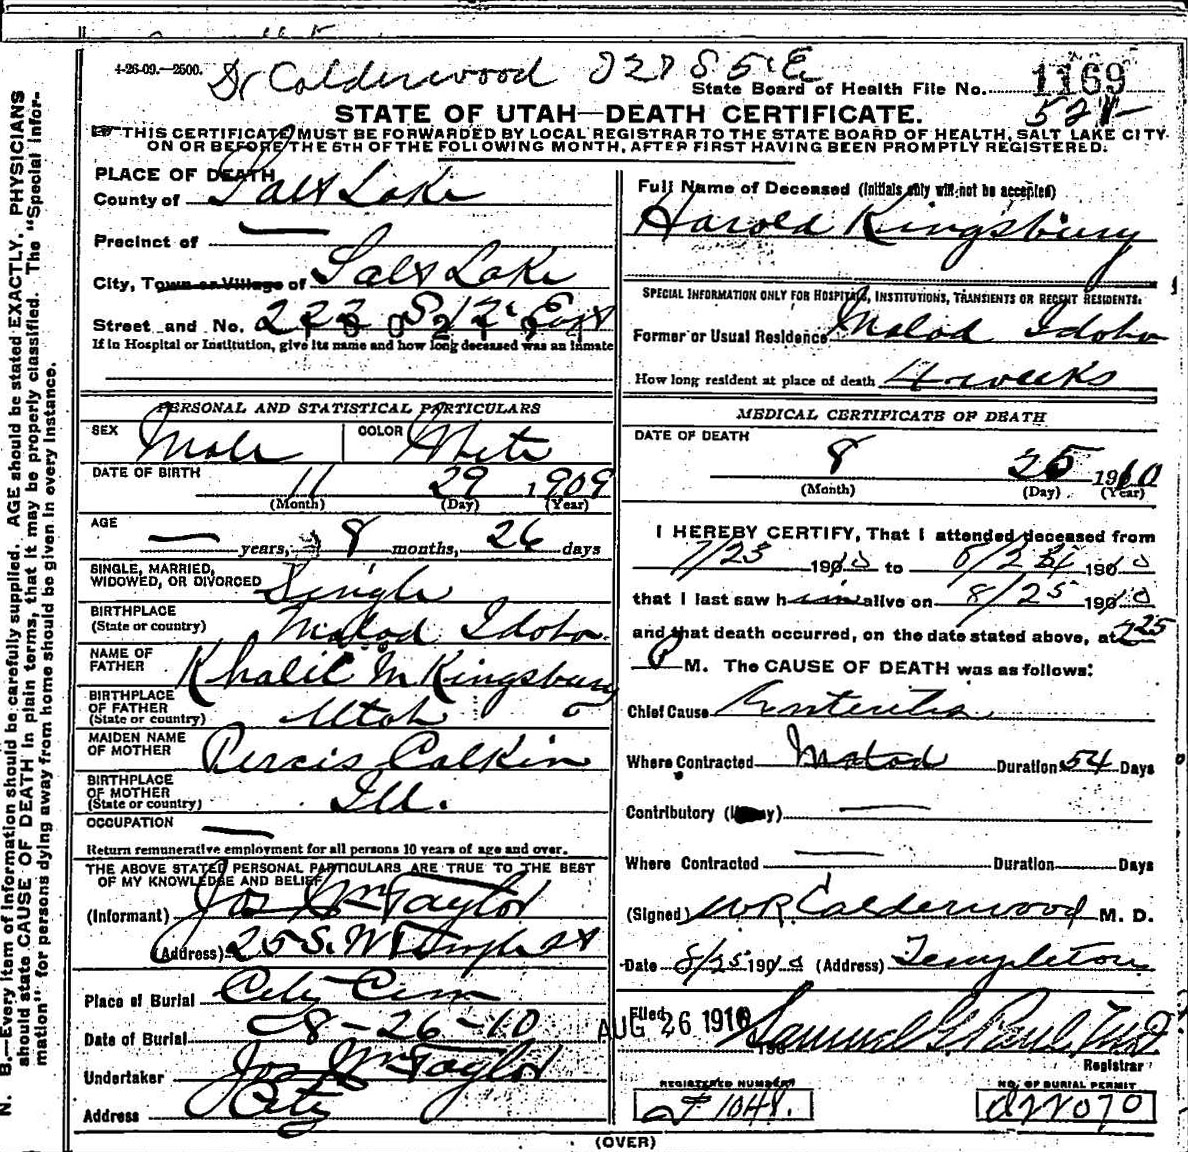 4-26-09.—2500.
Dr Calderwood
State Board of Health File No. 1169
STATE OF UTAH—DEATH CERTIFICATE.
THIS CERTIFICATE MUST BE FORWARDED BY LOCAL REGISTRAR TO THE STATE BOARD OF HEALTH, SALT LAKE CITY
ON OR BEFORE THE 5TH OF THE FOLLOWING MONTH, AFTER FIRST HAVING BEEN PROMPTLY REGISTERED.
PLACE OF DEATH
County of Salt Lake
Precinct of —
City, Town or Village of Salt Lake
Street and No. 222 S 12" East
If in Hospital or Institution, give its name and how long deceased was an inmate
PERSONAL AND STATISTICAL PARTICULARS
SEX Male COLOR White
DATE OF BIRTH 11 29 1909
(Month) (Day) (Year)
AGE
— years, 8 months, 26 days
SINGLE, MARRIED,
WIDOWED, OR DIVORCED Single
BIRTHPLACE
(State or country) Malad Idaho.
NAME OF
FATHER Khalil M Kingsbury
BIRTHPLACE
OF FATHER
(State or country) Utah
MAIDEN NAME
OF MOTHER Percis Calkin
BIRTHPLACE
OF MOTHER
(State or country) Ill.
OCCUPATION —
Return remunerative employment for all persons 10 years of age and over.
THE ABOVE STATED PERSONAL PARTICULARS ARE TRUE TO THE BEST
OF MY KNOWLEDGE AND BELIEF
(Informant) Jos Wm Taylor
(Address) 25 S. W Temple St
Place of Burial City Cem
Date of Burial 8-26-10
Undertaker Jos Wm Taylor
Address City
Full Name of Deceased (Initials only will not be accepted)
Harold Kingsbury
SPECIAL INFORMATION ONLY FOR HOSPITALS, INSTITUTIONS, TRANSIENTS OR RECENT RESIDENTS.
Former or Usual Residence Malad Idaho
How long resident at place of death 4 weeks
MEDICAL CERTIFICATE OF DEATH
DATE OF DEATH
8 25 1910
(Month) (Day) (Year)
I HEREBY CERTIFY, That I attended deceased from
7/23 1910 to 1910
that I last saw him alive on 8/25 1910
and that death occurred, on the date stated above, at 725
P M. The CAUSE OF DEATH was as follows:
Chief Cause Enteritis
Where Contracted Malad Duration 54 Days
Contributory —
Where Contracted — Duration Days
(Signed) W R Calderwood M. D.
Date 8/25 1910 (Address) Templeton
Filed AUG 26 1910 Samuel G. Paul, M.D.
Registrar
REGISTERED NUMBER
1048.
NO. OF BURIAL PERMIT
(OVER)
N. B.—Every item of information should be carefully supplied. AGE should be stated EXACTLY. PHYSICIANS
should state CAUSE OF DEATH in plain terms, that it may be properly classified. The "Special Infor-
mation" for persons dying away from home should be given in every instance.